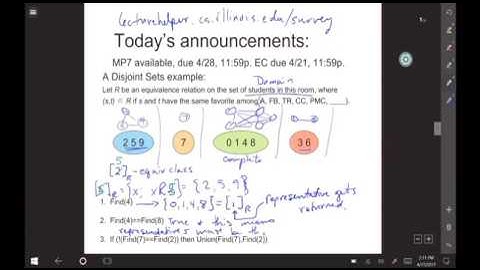 lecturehelper.ca.illinois.edu/survey
Today's announcements:
MP7 available, due 4/28, 11:59p. EC due 4/21, 11:59p.
A Disjoint Sets example:
Domain
Let R be an equivalence relation on the set of students in this room, where
(s,t) ∈ R if s and t have the same favorite among {A, FB, TR, CC, PMC, ____}.
2 5 9
7
0 1 4 8
3 6
complete
5
[2]R - equiv class
[5]R = {x : xR5} = {2, 5, 9}
1. Find(4) → {0,1,4,8} = [1]R
representative gets
returned.
2. Find(4)==Find(8) True & this means
representatives must be th
3. If (!(Find(7)==Find(2)) then Union(Find(7),Find(2))
2:11 PM